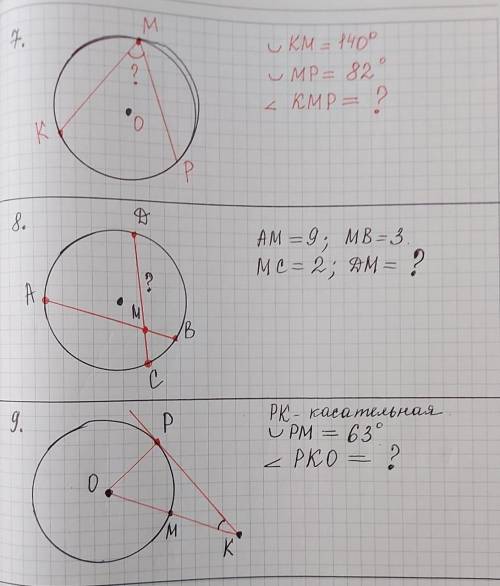 7.
M
?
O
K
P
◡ KM = 140°
◡ MP = 82°
∠ KMP = ?
8.
Д
?
A
M
B
C
AM = 9; MB = 3
MC = 2; ДM = ?
9.
P
O
M
K
PK - касательная
◡ PM = 63°
∠ PKO = ?